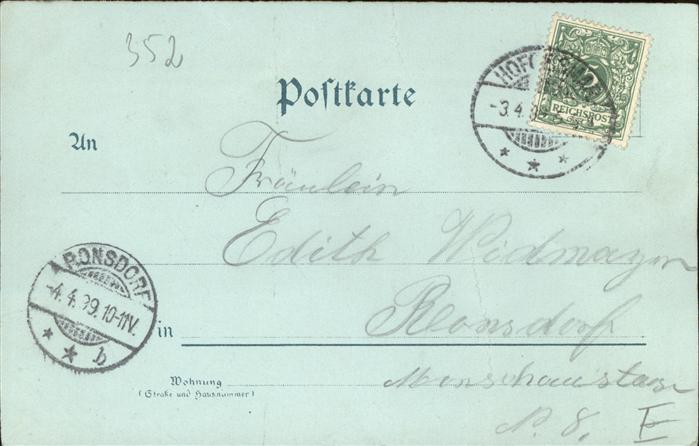 352
Postkarte
REICHSPOST
-3.4.
An
Fräulein
Edith Widmayer
RONSDORF
-4.4.99.10-11V.
* * b
in Ronsdorf
Wohnung
(Straße und Hausnummer)
N. 8. E